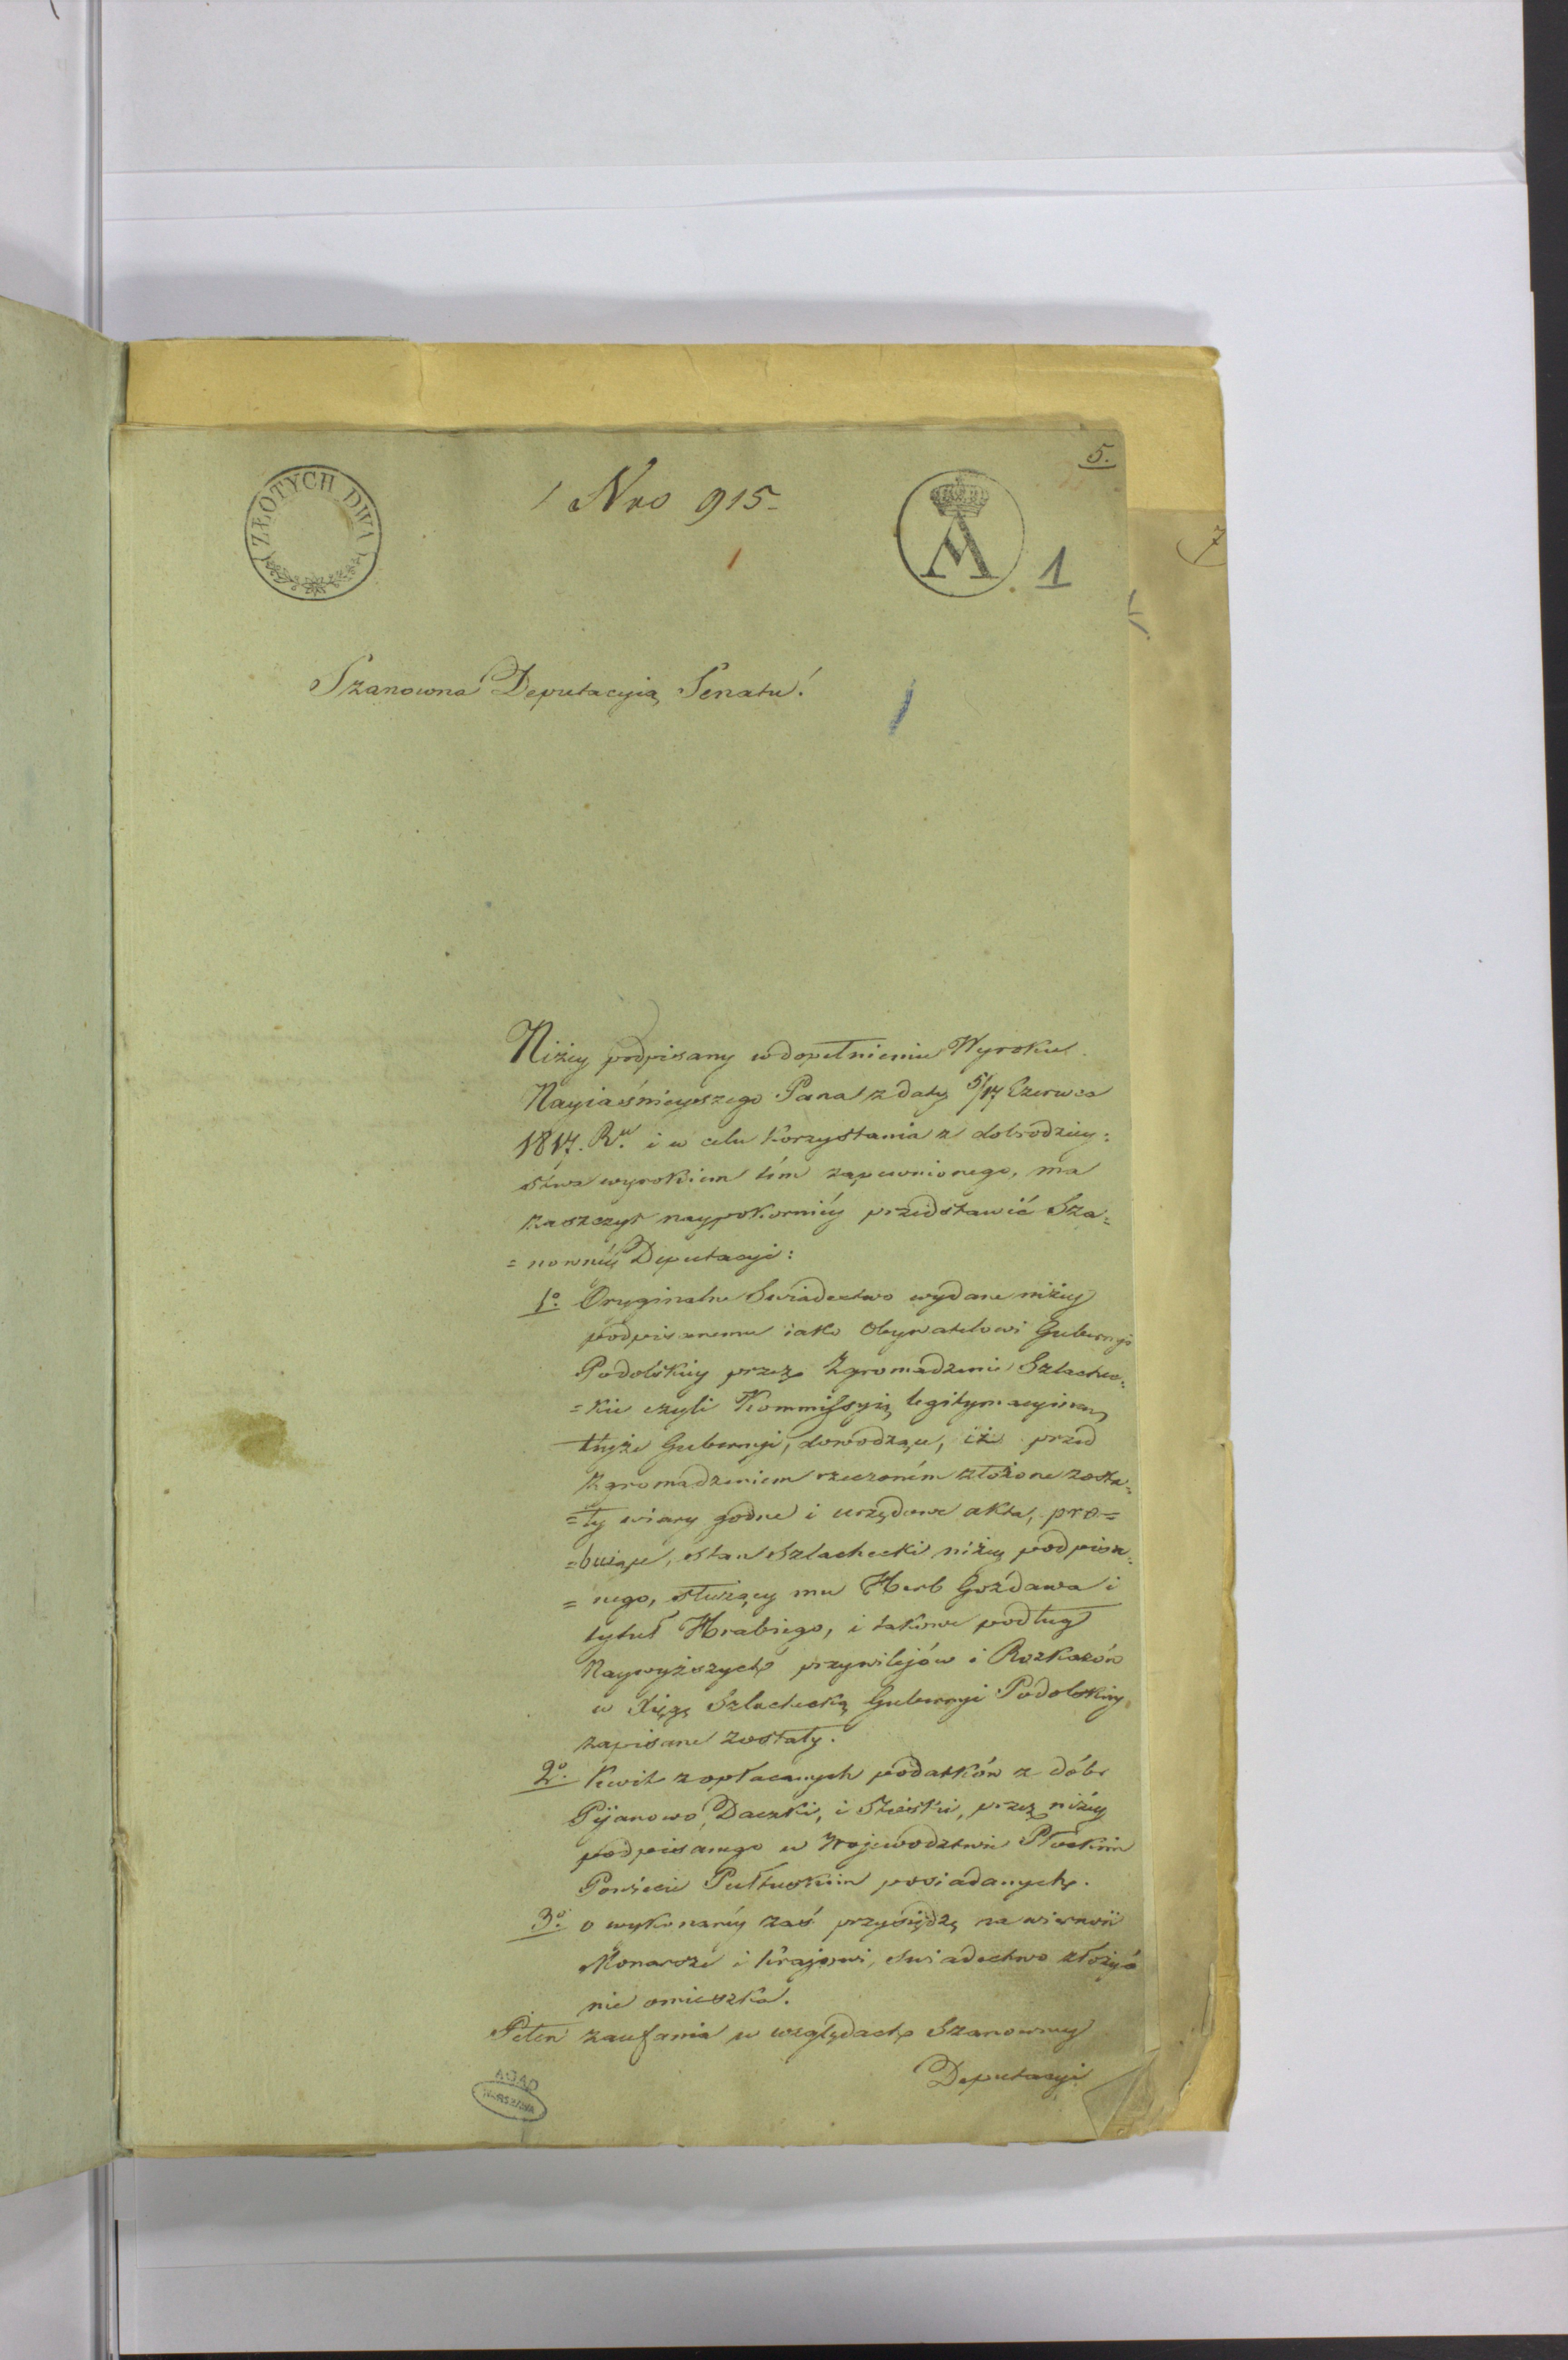 5.
ZŁOTYCH DWA
Nro 915.
A
1
7
Szanowna Deputacyia Senatu!
Niżey podpisany w dopełnieniu Wyroku
Nayiaśnieyszego Pana z daty 5/17 Czerwca
1817. Ru. i w celu korzystania z dobrodziey=
stwa wyrokiem tém zapewnionego, ma
zaszczyt naypokorniéy przedstawić Sza=
=nownéy Deputacyi:
1o. Oryginalne Swiadectwo wydane niżey
podpisanemu iako Obywatelowi Gubernyi
Podolskiey przez Zgromadzenie Szlachec=
=kie czyli Kommissyią legitymacyiną
téyże Gubernyi, dowodzące, iż przed
zgromadzeniem rzeczoném złożone zosta=
=ły wiary godne i urzędowe akta, pro=
=buiące, stan Szlachecki niżey podpisa=
=nego, służący mu Herb Gozdawa i
tytuł Hrabiego, i takowe podług
Naywyższych przywilejów i Rozkazów
w Xięgę Szlachecką Gubernyi Podolskiey
zapisane zostały.
2o. Kwit z opłacanych podatków z dóbr
Pijanowo, Daczki, i przez niżey
podpisanego w Województwie Płockim
Powiecie Pułtuskim posiadanych.
3o. o wykonanéy zaś przysiędze na wierność
Monarsze i krajowi, swiadectwo złożyć
nie omieszka.
Pełen zaufania w względach Szanowney
Deputacyi
AGAD
WARSZAWA